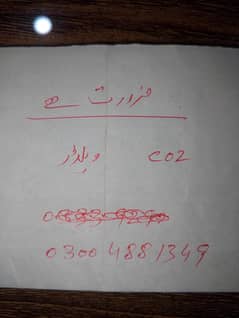 ضرورت ہے
CO2 ویلڈر
0300 4881349